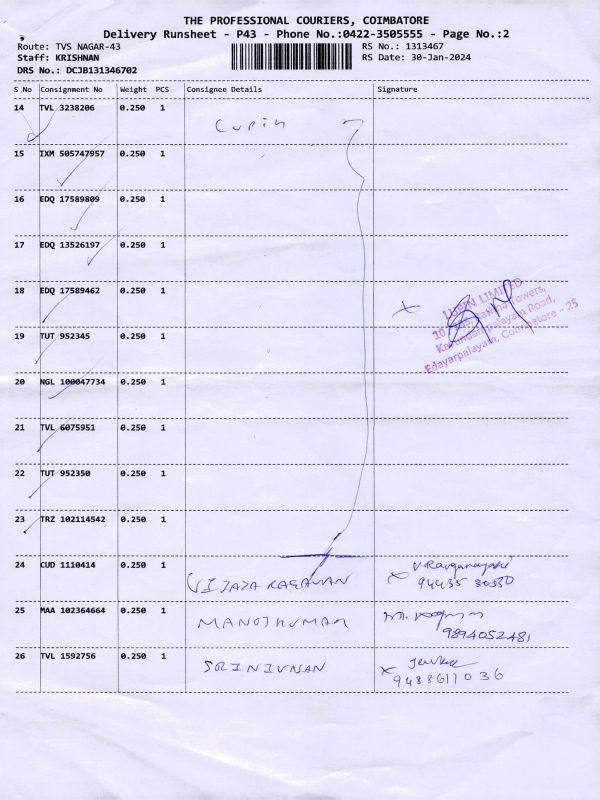 THE PROFESSIONAL COURIERS, COIMBATORE
Delivery Runsheet - P43 - Phone No.:0422-3505555 - Page No.:2
Route: TVS NAGAR-43 RS No.: 1313467
Staff: KRISHNAN RS Date: 30-Jan-2024
DRS No.: DCJB131346702
S.No Consignment No Weight PCS Consignee Details Signature
14 TVL 3238206 0.250 1 Lupin
15 IXM 505747957 0.250 1
16 EDQ 17589809 0.250 1
17 EDQ 13526197 0.250 1
18 EDQ 17589462 0.250 1
LUPIN LIMITED
Towers,
Road,
Edayarpalayam, Coimbatore - 25
19 TUT 952345 0.250 1
20 NGL 100047734 0.250 1
21 TVL 6075951 0.250 1
22 TUT 952350 0.250 1
23 TRZ 102114542 0.250 1
24 CUD 1110414 0.250 1 VIJAYA RAGAVAN
94435 30550
25 MAA 102364664 0.250 1 MANOJKUMAR
9894052481
26 TVL 1592756 0.250 1 SRINIVASAN
9488611036